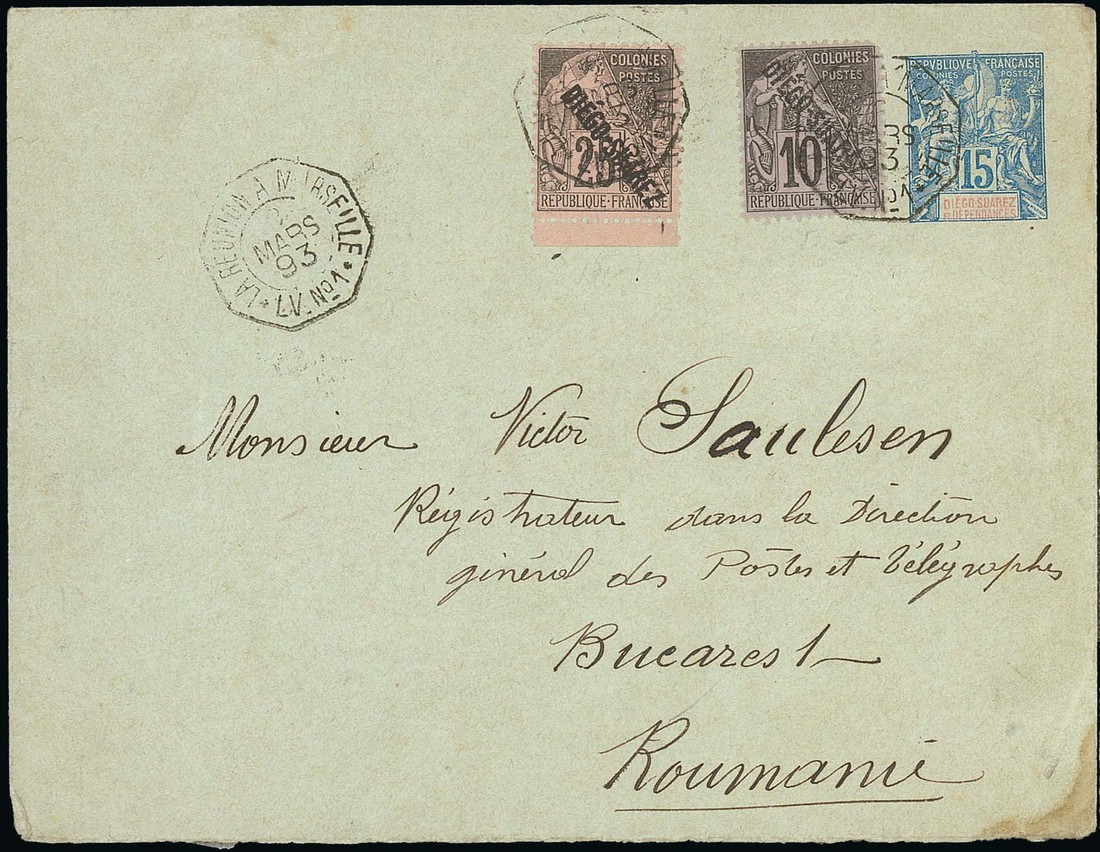 COLONIES
POSTES
DIEGO-SUAREZ
25
REPUBLIQUE-FRANÇAISE
COLONIES
POSTES
10
REPUBLIQUE-FRANÇAISE
REPVBLIQVE FRANÇAISE
COLONIES POSTES
15
DIÉGO-SUAREZ
ET DÉPENDANCES
MARSEILLE
93
LA REUNION A MARSEILLE
MARS
93
L.V. No1
Monsieur Victor Saulesen
Régistrateur dans la Direction
général des Postes et Télégraphes
Bucarest
Roumanie